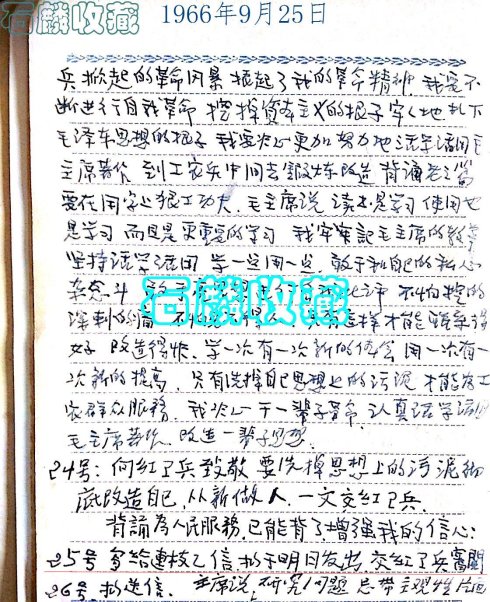 石麟收藏 1966年9月25日
兵掀起的革命风暴 振起了我的革命精神 我定不
断进行自我革命 挖掉资本主义的根子 牢牢地扎下
毛泽东思想的根子 我要决心更加努力地活学活用毛
主席著作 到工农兵中间去锻炼改造 背诵老三篇
要在用字上狠工功夫. 毛主席说 读书是学习 使用也
是学习 而且是更重要的学习 我牢牢记毛主席的教导
坚持活学活用 学一点用一点 敢于和自己的私心
杂念斗 敢于 不怕挖的
石麟收藏
深刺的痛 不怕 才能
好 改造得快. 学一次有一次新的体会 用一次有一
次新的提高. 只有洗掉自己思想上的污泥 才能为工
农群众服务. 我决心干一辈子革命. 认真活学活用
毛主席著作. 改造一辈子思想.
24号: 向红卫兵致敬 要洗掉思想上的污泥彻
底改造自己, 从新做人. 一文交红卫兵.
背诵为人民服务. 已能背了 增强我的信心:
25号 写给连枝之信 拟于明日发出. 交红卫兵
26号. 拟送信. 主席说 研究问题 忌带主观性 片面